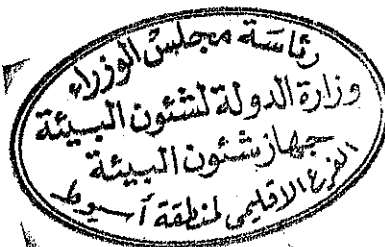 رئاسة مجلس الوزراء
وزارة الدولة لشئون البيئة
جهاز شئون البيئة
الفرع الاقليمى لمنطقة أسيوط